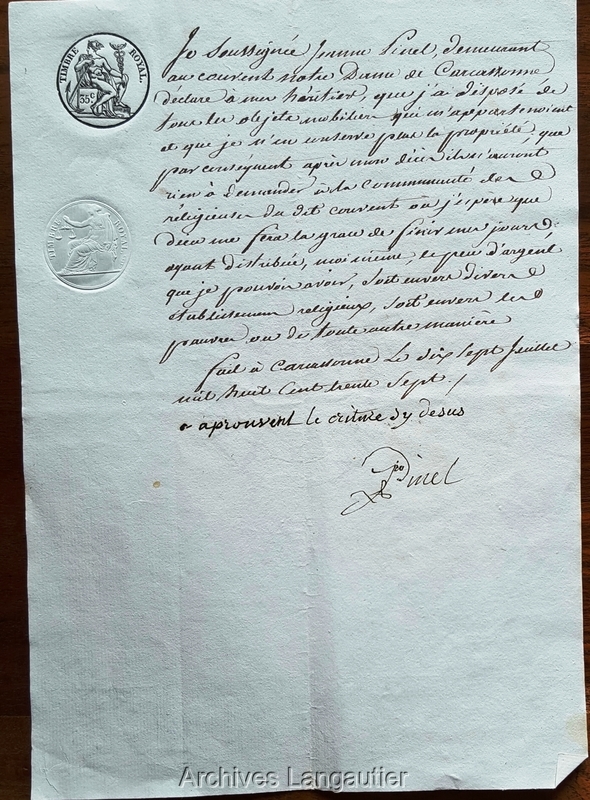 TIMBRE ROYAL
35 C
TIMBRE ROYAL
Je Soussignée Jeanne Pinel, demeurant
au couvent notre Dame de Carcassonne
déclare à mes héritiers, que j'ai disposé de
tous les objets mobiliers qui m'appartenoient
et que je n'en conserve plus la propriété, que
par conséquent après mon décès ils n'auront
rien à demander à la Communauté des
religieuses du dit couvent où j'espère que
dieu me fera la grace de finir mes jours
ayant distribuée, moi même le peu d'argent
que je pouvois avoir, soit envers divers
établissement religieux, soit envers les
pauvres ou de toute autre manière
fait à Carcassonne le dix sept Juillet
mil huit Cent trente Sept /
aprouvent le criture sy desus
Pinel
Archives Langautier